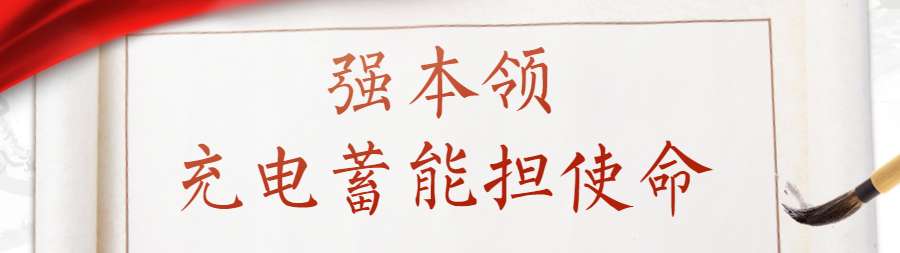 强本领
充电蓄能担使命